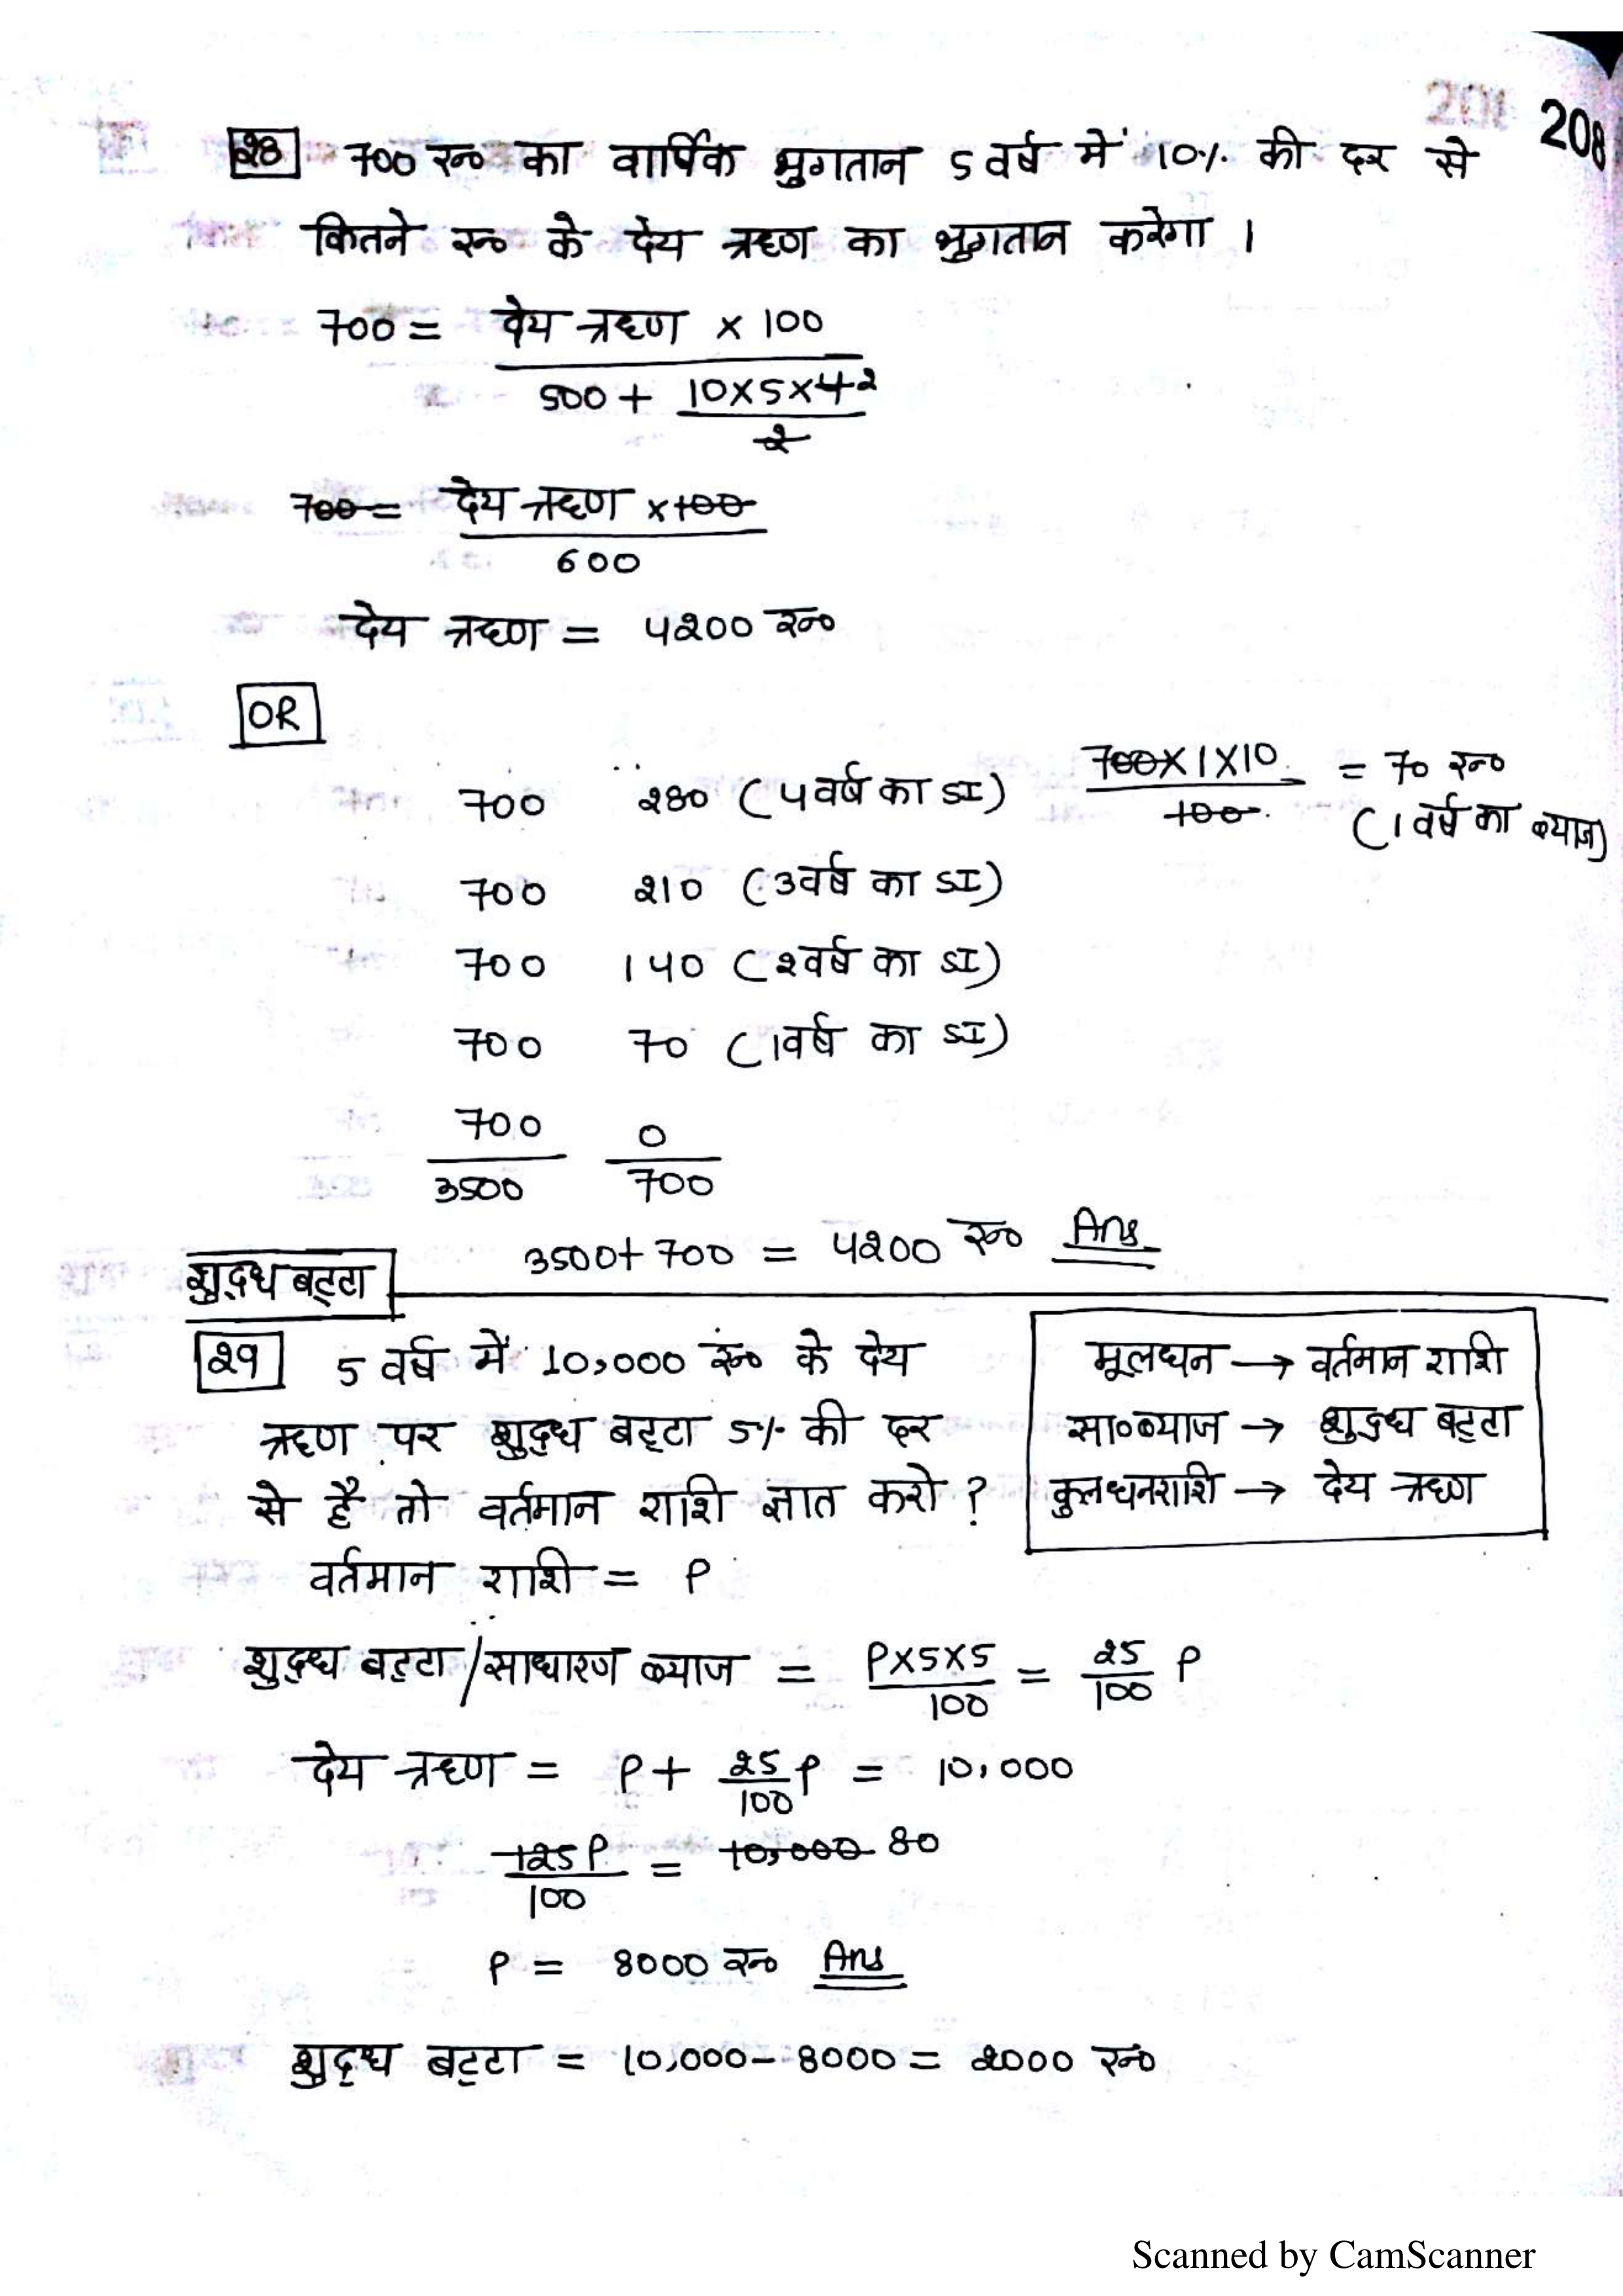 208
28 700 रु० का वार्षिक भुगतान 5 वर्ष में 10% की दर से
कितने रु० के देय ऋण का भुगतान करेगा ।
700 = देय ऋण × 100
500 + 10×5×4 2
2
700 = देय ऋण ×100
600
देय ऋण = 4200 रु०
OR
700 280 (4 वर्ष का SI) 700×1×10 = 70 रु०
100 (1 वर्ष का ब्याज)
700 210 (3 वर्ष का SI)
700 140 (2 वर्ष का SI)
700 70 (1 वर्ष का SI)
700 0
3500 700
3500 + 700 = 4200 रु० Ans
शुद्ध बट्टा
29 5 वर्ष में 10,000 रु० के देय
ऋण पर शुद्ध बट्टा 5% की दर
से है तो वर्तमान राशि ज्ञात करो ?
मूलधन → वर्तमान राशि
सा० ब्याज → शुद्ध बट्टा
कुलधनराशि → देय ऋण
वर्तमान राशि = P
शुद्ध बट्टा/साधारण ब्याज = P×5×5 = 25 P
100 100
देय ऋण = P + 25 P = 10,000
100
125P = 10,000 80
100
P = 8000 रु० Ans
शुद्ध बट्टा = 10,000 - 8000 = 2000 रु०
Scanned by CamScanner